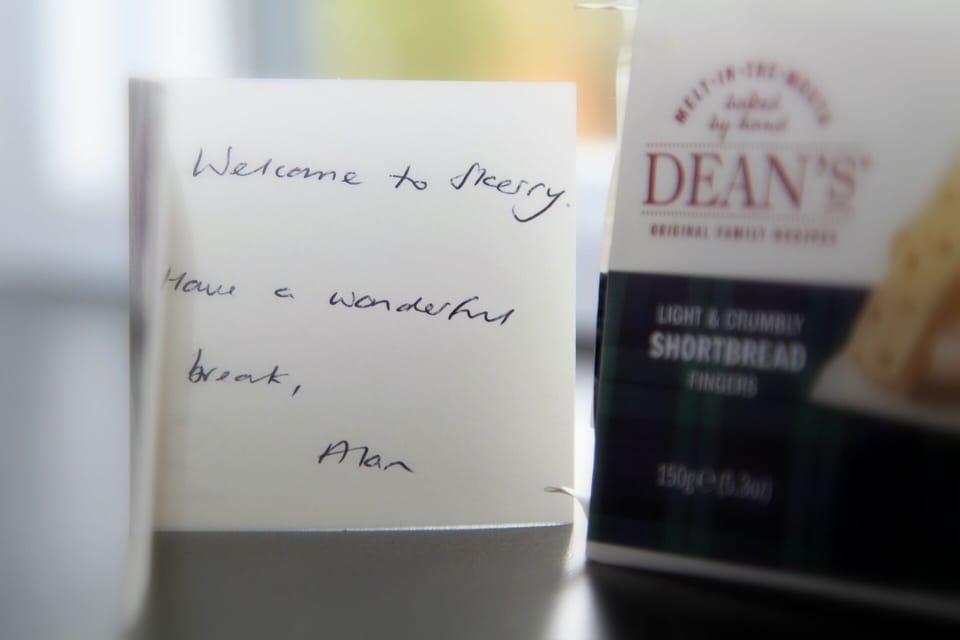 Welcome to Skerry.
Have a wonderful
break,
Alan
MELT-IN-THE-MOUTH
baked
by hand
DEAN'S
ORIGINAL FAMILY RECIPES
LIGHT & CRUMBLY
SHORTBREAD
FINGERS
150g℮ (5.3oz)